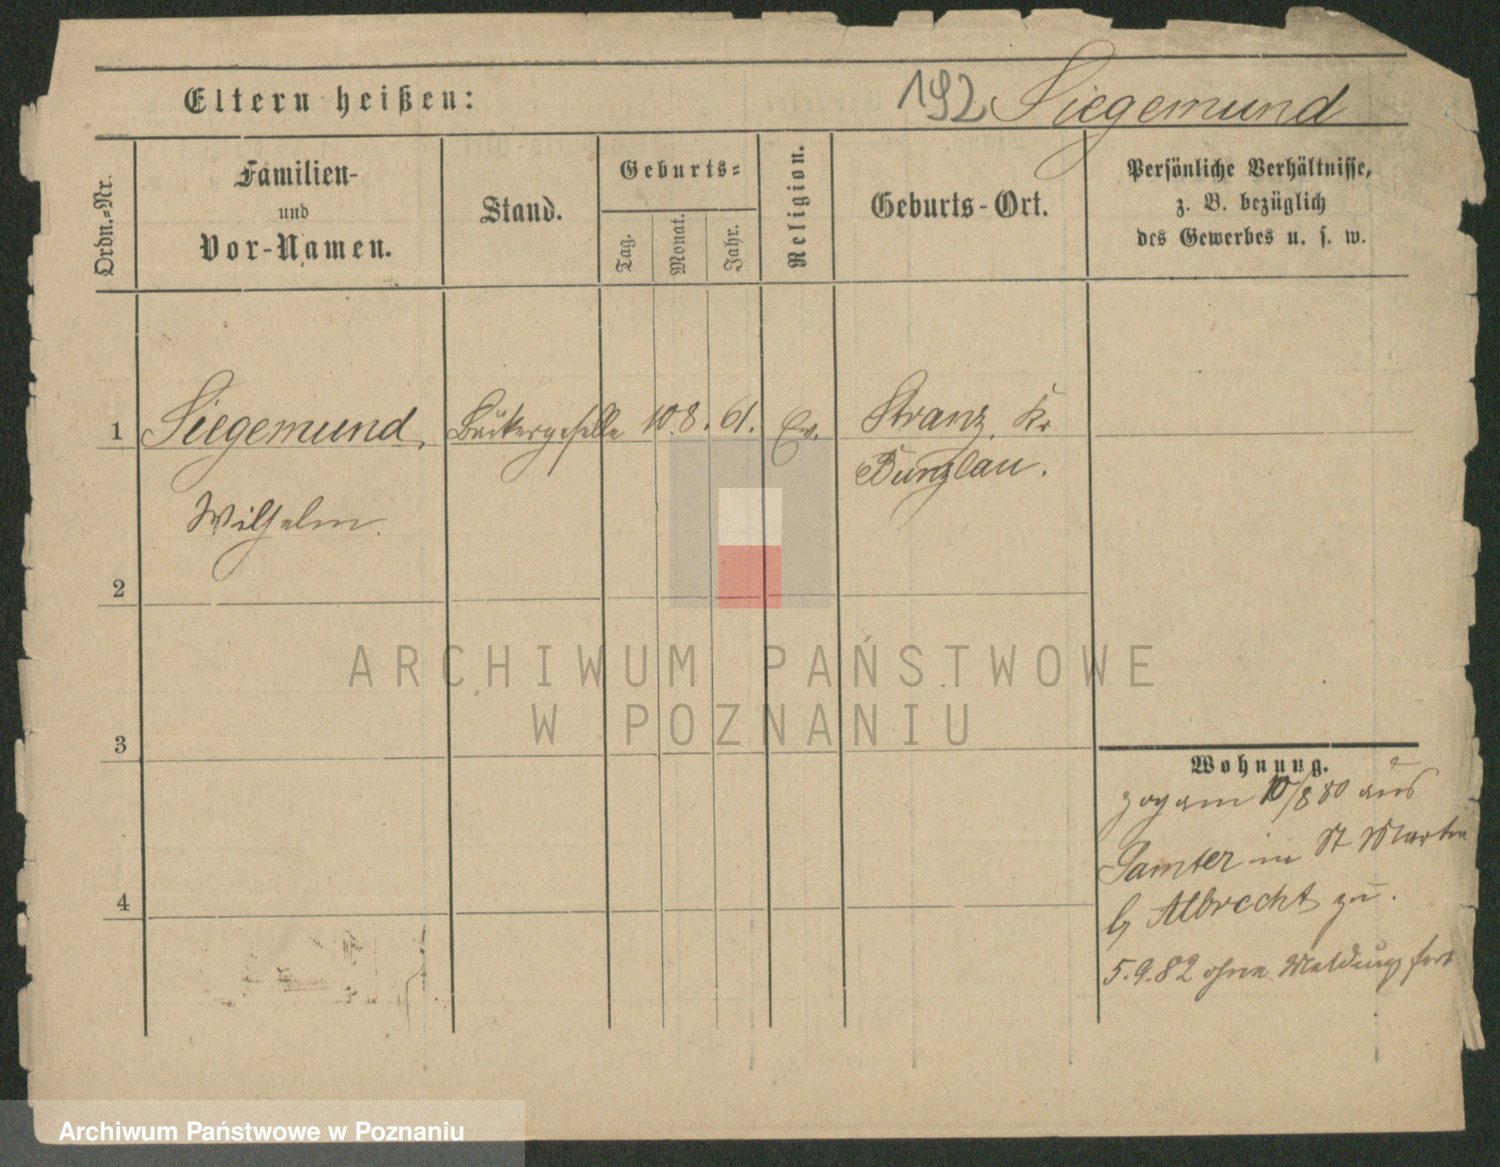 Eltern heißen:
192 Siegemund
Ordn.=Nr.
Familien-
und
Vor-Namen.
Stand.
Geburts=
Tag.
Monat.
Jahr.
Religion.
Geburts-Ort.
Persönliche Verhältnisse,
z. B. bezüglich
des Gewerbes u. s. w.
1 Siegemund, Bäckergeselle 10.8.61. Ev. Stranz, Kr
Bunzlau.
Wilhelm.
2
3
4
Wohnung.
zog am 10/8 80 aus
Samter in St Martin
b/ Albrecht zu.
5.9.82 ohne Meldung fort
ARCHIWUM PAŃSTWOWE
W POZNANIU
Archiwum Państwowe w Poznaniu